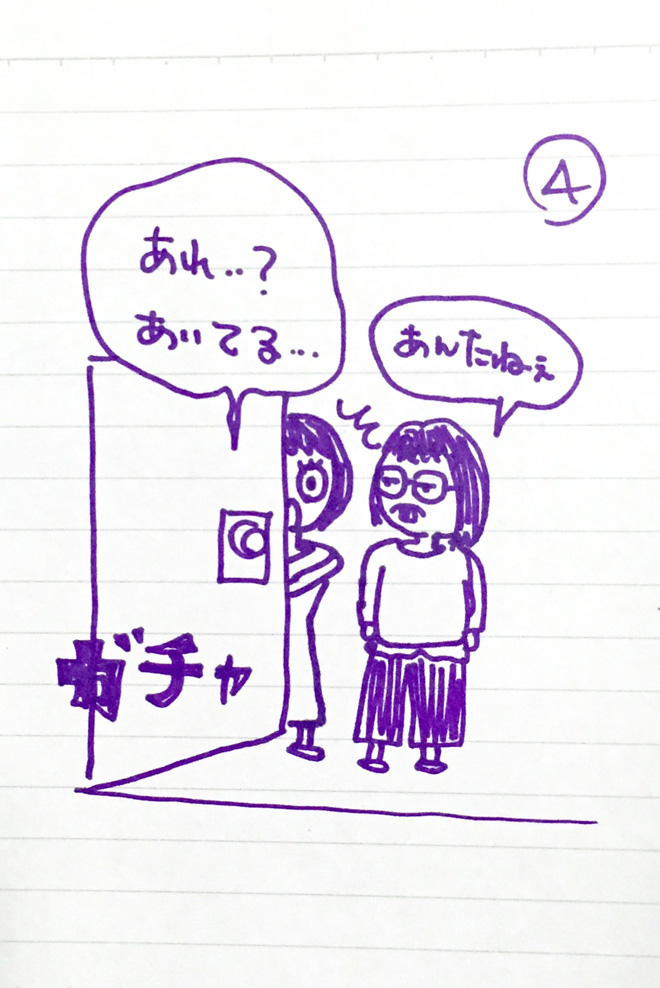 ④
あれ‥？
あいてる…
あんたねぇ
ガチャ